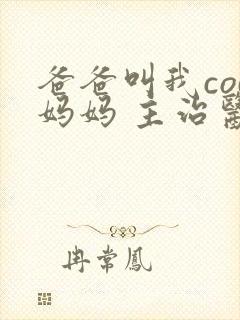 爸爸叫我co
妈妈 主治
冉常鳳